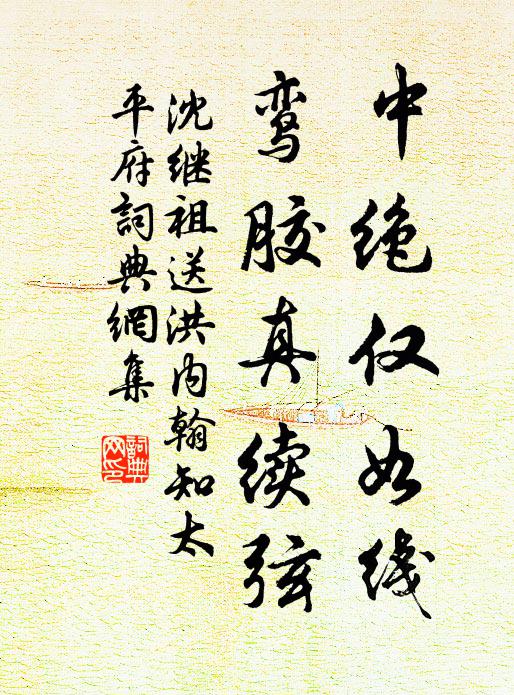 中绝仅如线
鸾胶真续弦
沈继祖送洪内翰知太
平府詞典網集
詞典网印